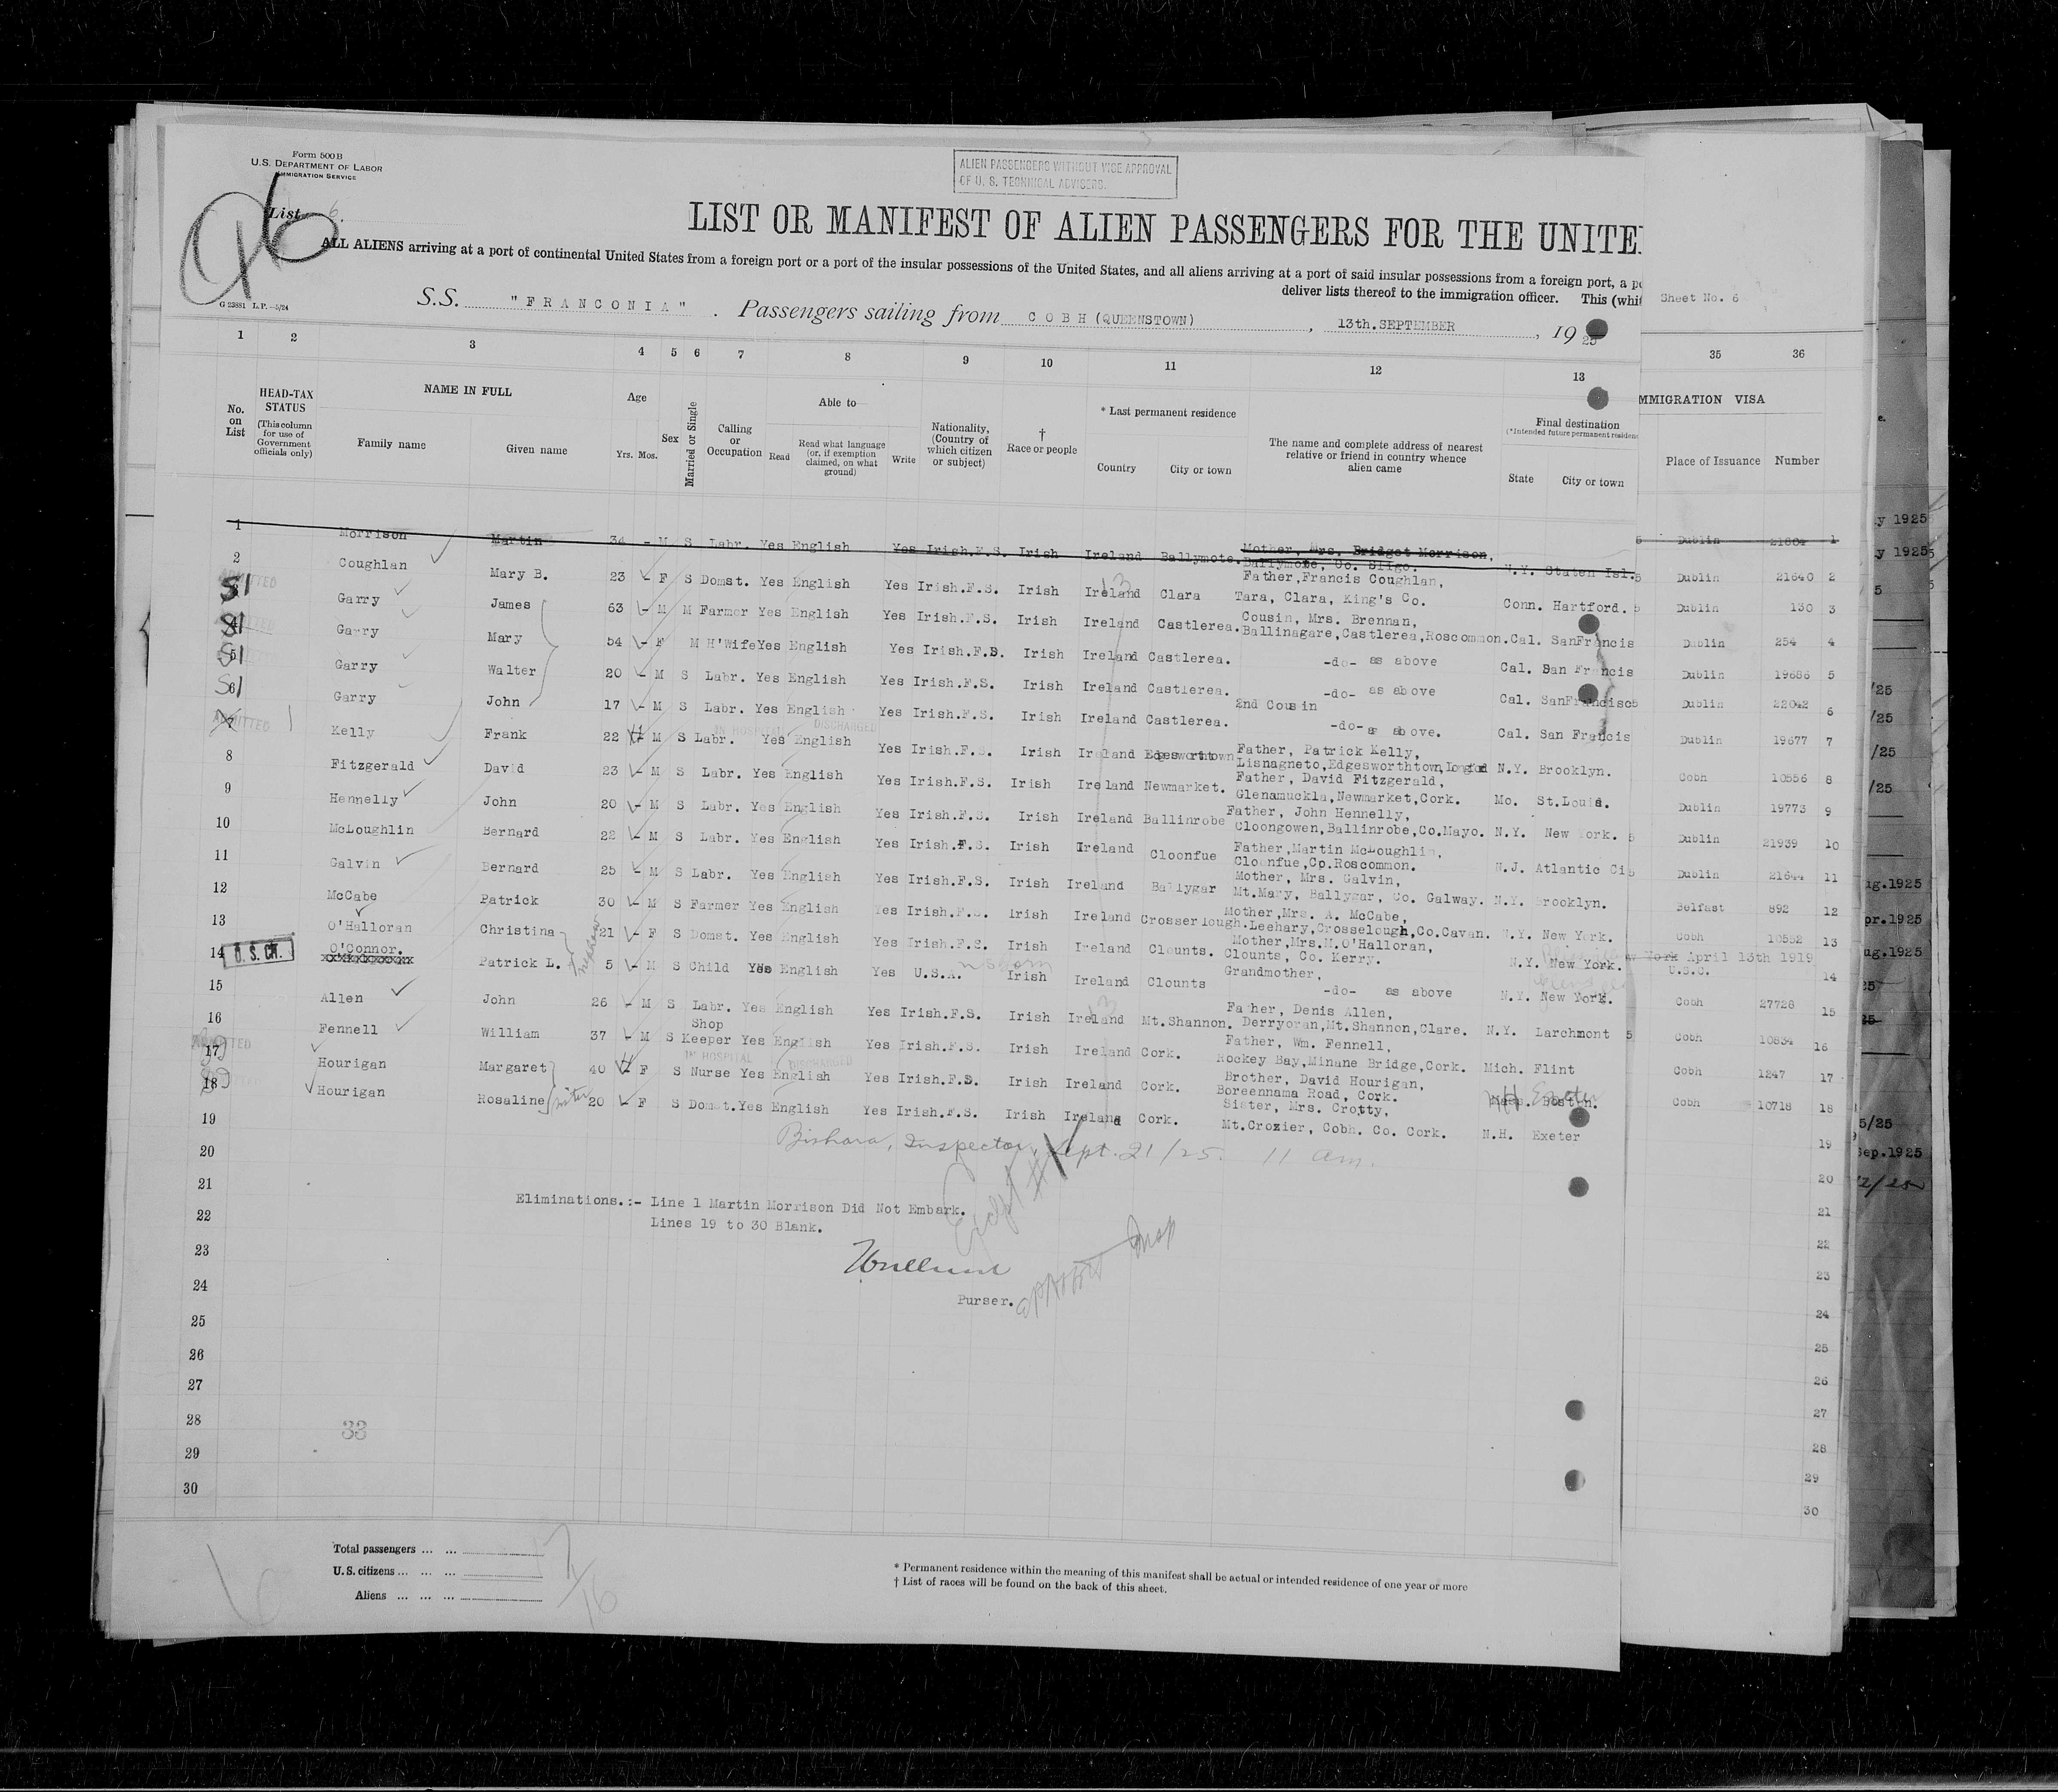 Form 500B
U.S. DEPARTMENT OF LABOR
IMMIGRATION SERVICE
ALIEN PASSENGERS WITHOUT VICE APPROVAL
OF U. S. TECHNICAL ADVISERS.
List 6.
LIST OR MANIFEST OF ALIEN PASSENGERS FOR THE UNITE
ALL ALIENS arriving at a port of continental United States from a foreign port or a port of the insular possessions of the United States, and all aliens arriving at a port of said insular possessions from a foreign port, a
deliver lists thereof to the immigration officer. This (whit
Sheet No. 6
G 23881 L.P.—5/24
S.S. "FRANCONIA". Passengers sailing from COBH (QUEENSTOWN), 13th.SEPTEMBER, 1925
1 2 3 4 5 6 7 8 9 10 11 12 13 35 36
No. on List
HEAD-TAX STATUS (This column for use of Government officials only)
NAME IN FULL
Family name Given name
Age
Yrs. Mos.
Sex
Married or Single
Calling or Occupation
Able to
Read Read what language (or, if exemption claimed, on what ground) Write
Nationality, (Country of which citizen or subject)
† Race or people
* Last permanent residence
Country City or town
The name and complete address of nearest relative or friend in country whence alien came
Final destination
(*Intended future permanent residenc
State City or town
MMIGRATION VISA
Place of Issuance Number
1 Morrison Martin 34 - M S Labr. Yes English Yes Irish.F.S. Irish Ireland Ballymote. Mother, Mrs. Bridget Morrison, Ballymote, Co. Sligo. N.Y. Staten Isl. Dublin 21864 1
2 Coughlan Mary B. 23 - F S Domst. Yes English Yes Irish.F.S. Irish Ireland Clara Father,Francis Coughlan, Tara, Clara, King's Co. Conn. Hartford. Dublin 21640 2
SI Garry James 63 - M M Farmer Yes English Yes Irish.F.S. Irish Ireland Castlerea. Cousin, Mrs. Brennan, Ballinagare,Castlerea,Roscommon. Cal. SanFrancis Dublin 130 3
SI Garry Mary 54 - F M H'Wife Yes English Yes Irish.F.S. Irish Ireland Castlerea. -do- as above Cal. San Francis Dublin 254 4
SI Garry Walter 20 - M S Labr. Yes English Yes Irish.F.S. Irish Ireland Castlerea. -do- as above Cal. SanFrancisco Dublin 19686 5
SI Garry John 17 - M S Labr. Yes English Yes Irish.F.S. Irish Ireland Castlerea. 2nd Cousin -do- as above. Cal. San Francis Dublin 22042 6
ADMITTED Kelly Frank 22 M S Labr. Yes English Yes Irish.F.S. Irish Ireland Edgesworthtown Father, Patrick Kelly, Lisnagneto,Edgesworthtown,Longfod N.Y. Brooklyn. Dublin 19677 7
IN HOSPITAL DISCHARGED
8 Fitzgerald David 23 - M S Labr. Yes English Yes Irish.F.S. Irish Ireland Newmarket. Father, David Fitzgerald, Glenamuckla,Newmarket,Cork. Mo. St.Louis. Cobh 10556 8
9 Hennelly John 20 - M S Labr. Yes English Yes Irish.F.S. Irish Ireland Ballinrobe Father, John Hennelly, Cloongowen,Ballinrobe,Co.Mayo. N.Y. New York. Dublin 19773 9
10 McLoughlin Bernard 22 - M S Labr. Yes English Yes Irish.F.S. Irish Ireland Cloonfue Father,Martin McLoughlin, Cloonfue,Cp.Roscommon. N.J. Atlantic Ci Dublin 21939 10
11 Galvin Bernard 25 - M S Labr. Yes English Yes Irish.F.S. Irish Ireland Ballygar Mother, Mrs. Galvin, Mt.Mary, Ballygar, Co. Galway. N.Y. Brooklyn. Dublin 21644 11
12 McCabe Patrick 30 - M S Farmer Yes English Yes Irish.F.S. Irish Ireland Crosserlough. Mother,Mrs. A. McCabe, Leehary,Crosselough,Co.Cavan. N.Y. New York. Belfast 892 12
13 O'Halloran Christina 21 - F S Domst. Yes English Yes Irish.F.S. Irish Ireland Clounts. Mother,Mrs.M.O'Halloran, Clounts, Co. Kerry. N.Y. New York. Cobh 10552 13
14 U.S. CIT. O'Connor. Patrick L. nephew 5 - M S Child Yes English Yes U.S.A. Irish Ireland Clounts Grandmother, -do- as above N.Y. New York. York April 13th 1919 U.S.C. 14
15 Allen John 26 - M S Labr. Yes English Yes Irish.F.S. Irish Ireland Mt.Shannon. Father, Denis Allen, Derryoran,Mt.Shannon,Clare. N.Y. Larchmont Cobh 27728 15
16 Fennell William 37 - M S Shop Keeper Yes English Yes Irish.F.S. Irish Ireland Cork. Father, Wm. Fennell, Rockey Bay,Minane Bridge,Cork. Mich. Flint Cobh 10834 16
ADMITTED IN HOSPITAL DISCHARGED
17 Hourigan Margaret 40 F S Nurse Yes English Yes Irish.F.S. Irish Ireland Cork. Brother, David Hourigan, Boreennama Road, Cork. Mass. Boston. NH Exeter Cobh 1247 17
18 Hourigan Rosaline sister 20 - F S Domst. Yes English Yes Irish.F.S. Irish Ireland Cork. Sister, Mrs. Crotty, Mt.Crozier, Cobh. Co. Cork. N.H. Exeter Cobh 10718 18
19 19
Bishara, Inspector, Sept. 21/25. 11 am.
20 20
21 21
Eliminations.:- Line 1 Martin Morrison Did Not Embark.
22 Lines 19 to 30 Blank. 22
23 23
24 Purser. 24
25 25
26 26
27 27
28 33 28
29 29
30 30
Total passengers ... ... 17
U.S. citizens ... ... ... 1
Aliens ... ... ... 16
* Permanent residence within the meaning of this manifest shall be actual or intended residence of one year or more
† List of races will be found on the back of this sheet.